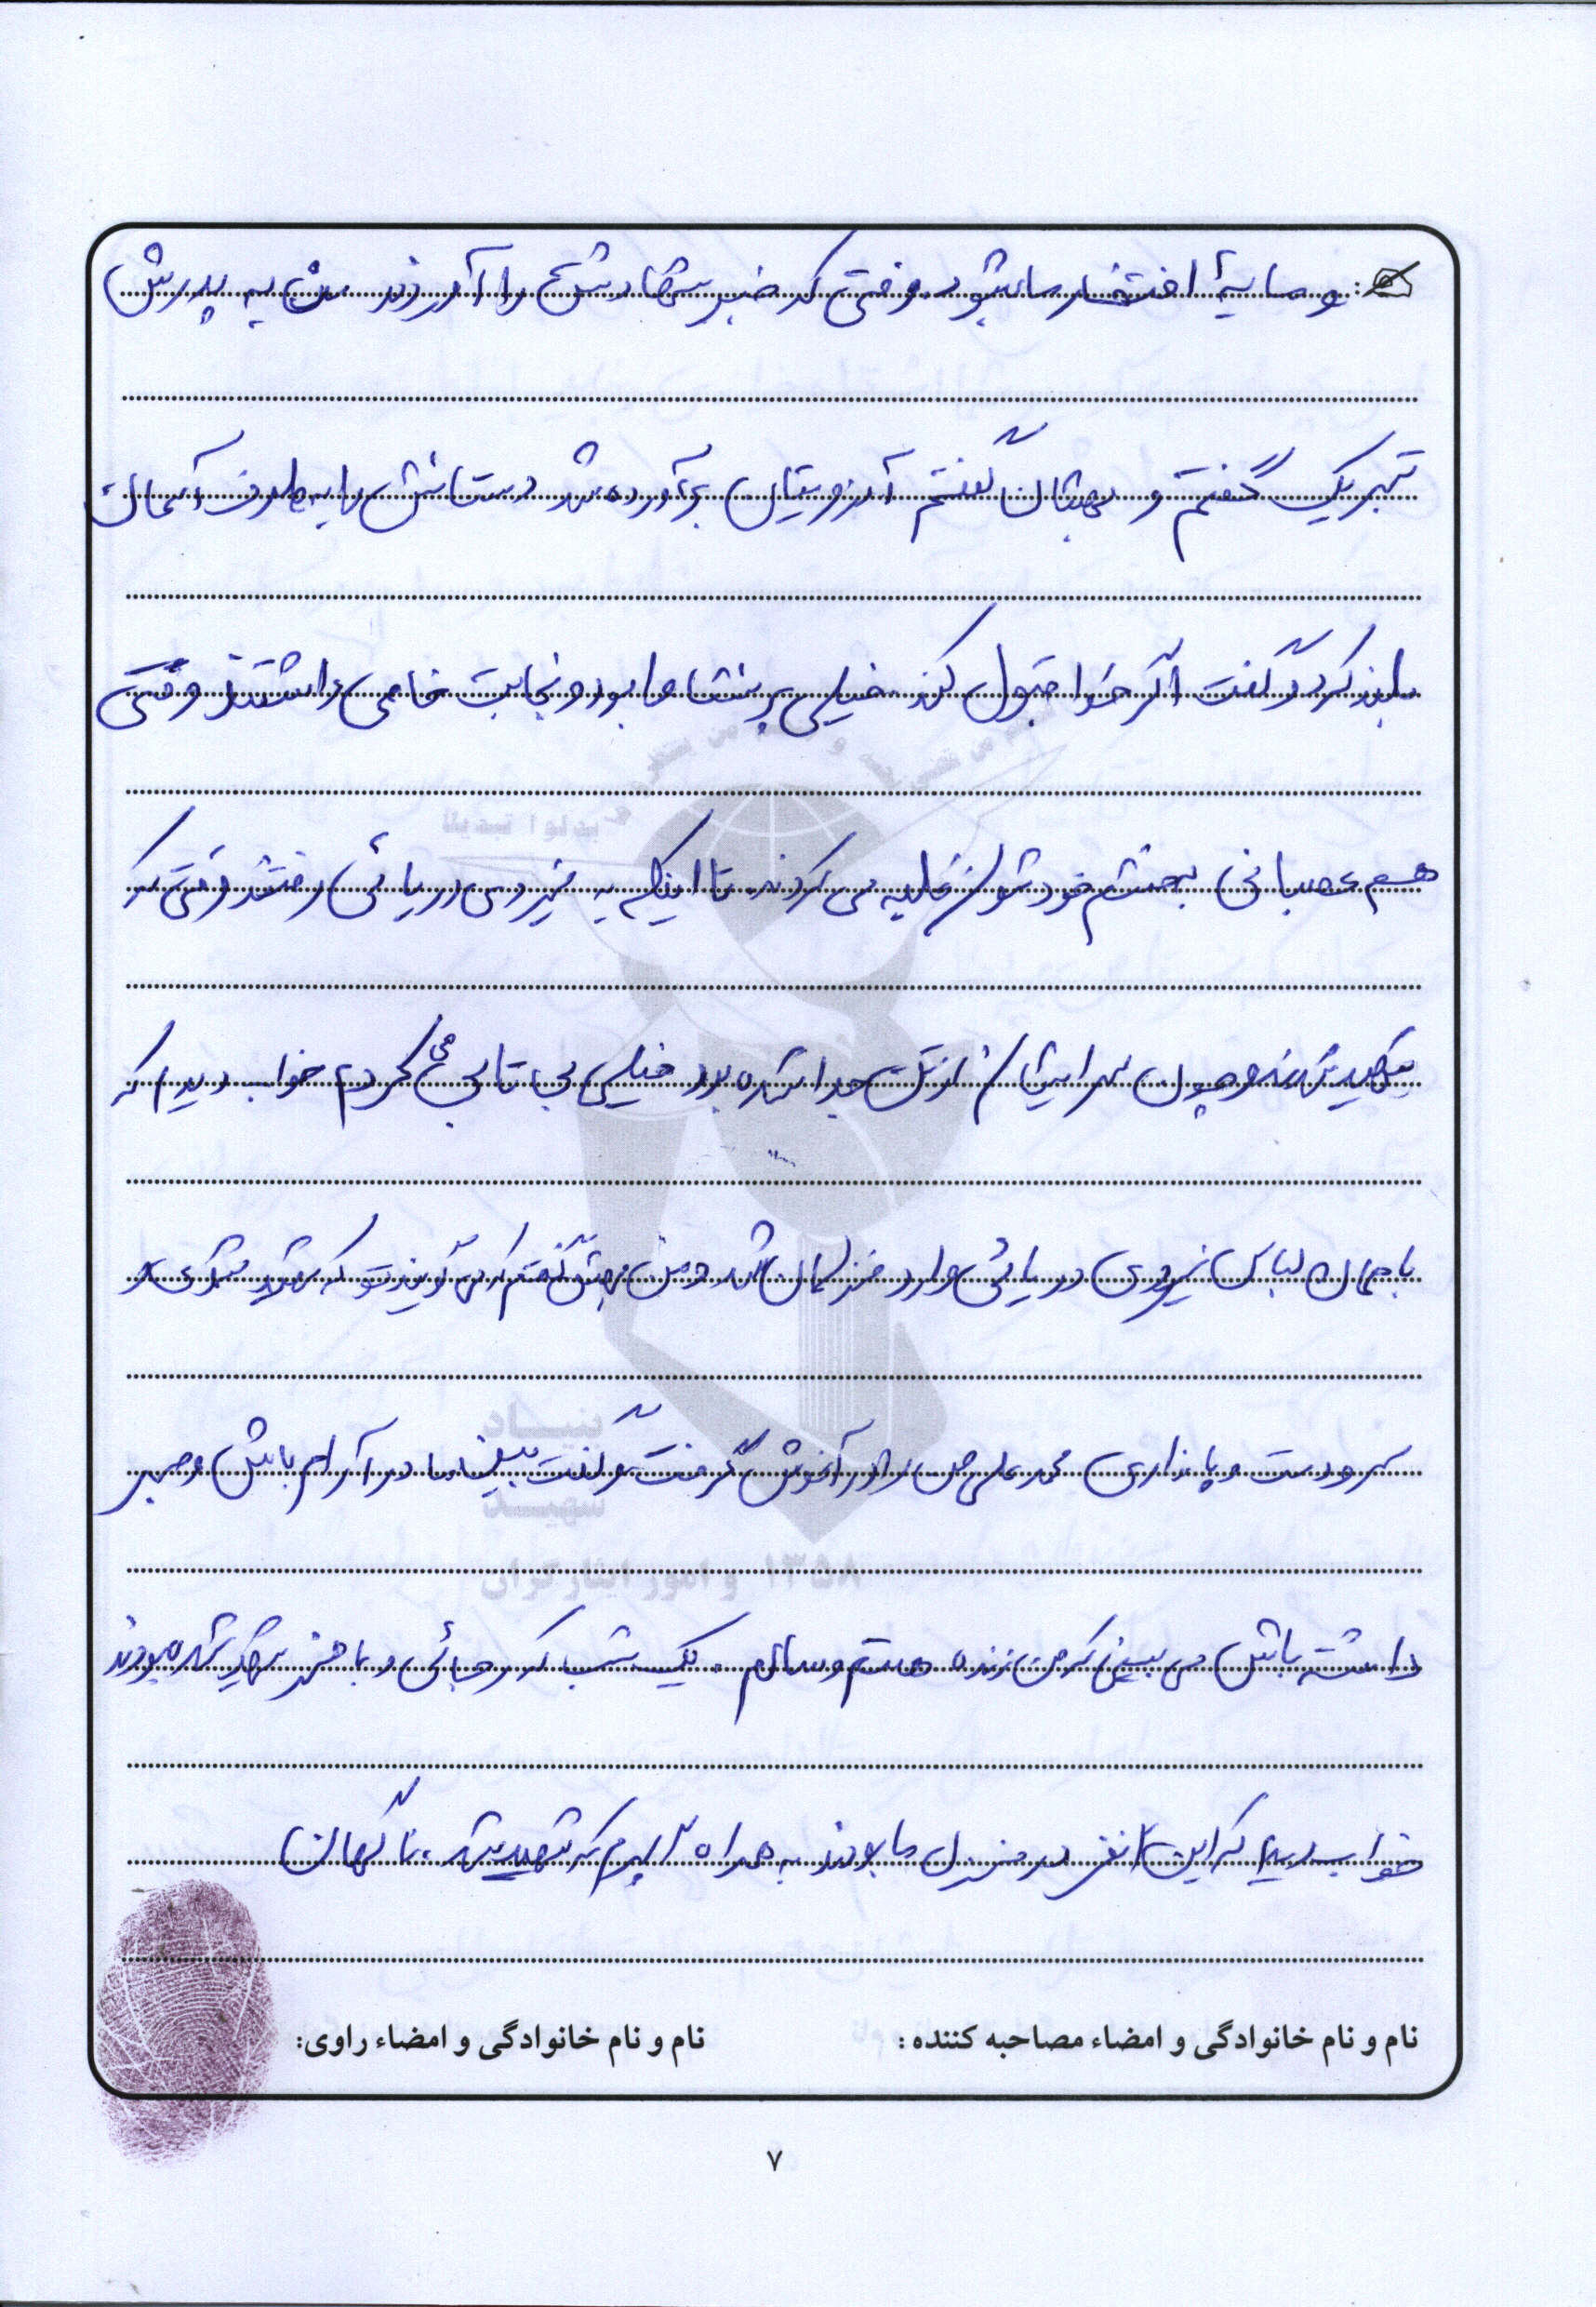 و مایهٔ افتخار ما بشود. وقتی که خبر شهادتش را آوردند من به پدرش
تبریک گفتم و بهشان گفتم آرزویتان برآورده شد دستانش را به طرف آسمان
بلند کرد و گفت اگر خدا قبول کند. خیلی پر بود و نجابت خاصی داشتند وقتی
هم عصبانی به خشم خودشان غلبه می کردند. تا اینکه به نیروی دریائی رفتند وقتی که
شهید شدند و چون سر ایشان از تن جدا شده بود خیلی بی تابی می کردم خواب دیدم که
با همان لباس نیروی دریائی وارد منزلمان شد و من بهش گفتم که می گویند تو که شهید شدی
سر و دست و پا نداری محمد علی من را در آغوش گرفت و گفت ببین مادر آرام باش و صبر
داشته باش می بینی که من زنده هستم و سالم. یک شب که رجائی و باهنر شهید شده بودند
خواب دیدم که این ۲ نفر در منزل ما بودند به همراه پسرم که شهید شد. ناگهان
نام و نام خانوادگی و امضاء مصاحبه کننده :
نام و نام خانوادگی و امضاء راوی:
بنیاد
شهید
و امور ایثارگران ۱۳۵۸
۷